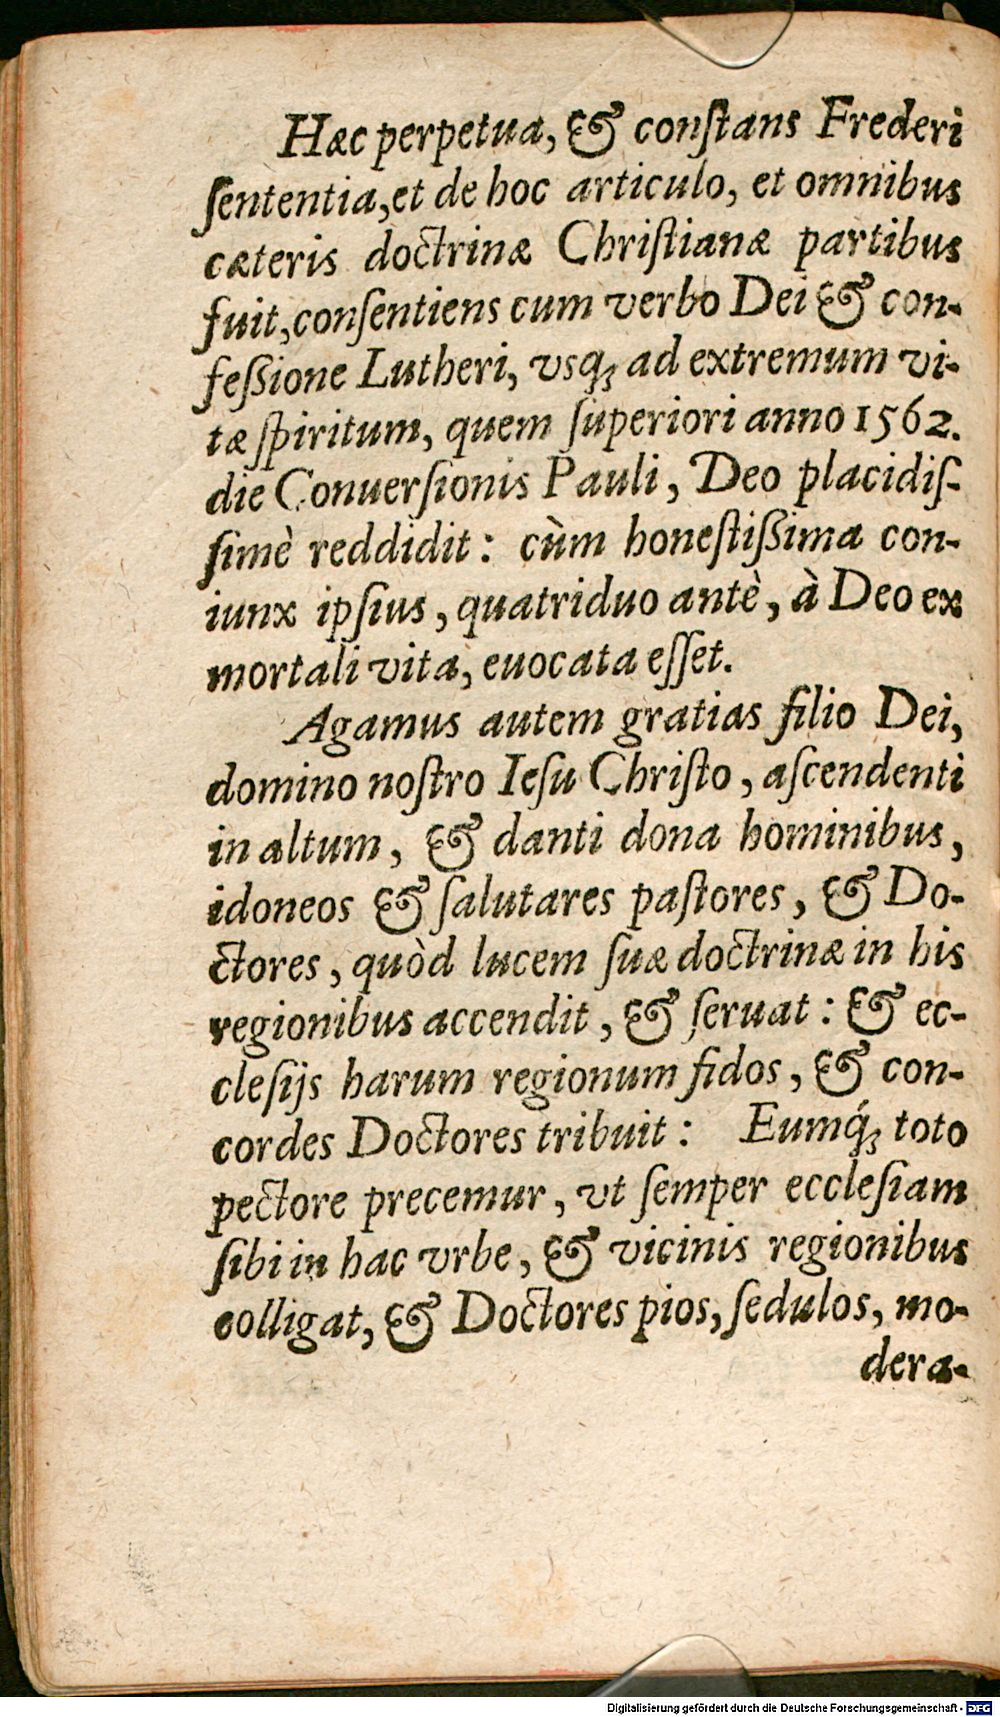 Hæc perpetua, & conſtans Frederi
ſententia, et de hoc articulo, et omnibus
cæteris doctrinæ Chriſtianæ partibus
fuit, conſentiens cum verbo Dei & con-
feſsione Lutheri, vsq; ad extremum vi-
tæ ſpiritum, quem ſuperiori anno 1562.
die Conuerſionis Pauli, Deo placidiſ-
ſimè reddidit: cùm honeſtiſsima con-
iunx ipſius, quatriduo antè, à Deo ex
mortali vita, euocata eſſet.
Agamus autem gratias filio Dei,
domino noſtro Ieſu Chriſto, aſcendenti
in altum, & danti dona hominibus,
idoneos & ſalutares paſtores, & Do-
ctores, quòd lucem ſuæ doctrinæ in his
regionibus accendit, & ſeruat: & ec-
cleſijs harum regionum fidos, & con-
cordes Doctores tribuit: Eumq́; toto
pectore precemur, vt ſemper eccleſiam
ſibi in hac vrbe, & vicinis regionibus
colligat, & Doctores pios, ſedulos, mo-
dera-
Digitalisierung gefördert durch die Deutsche Forschungsgemeinschaft - DFG